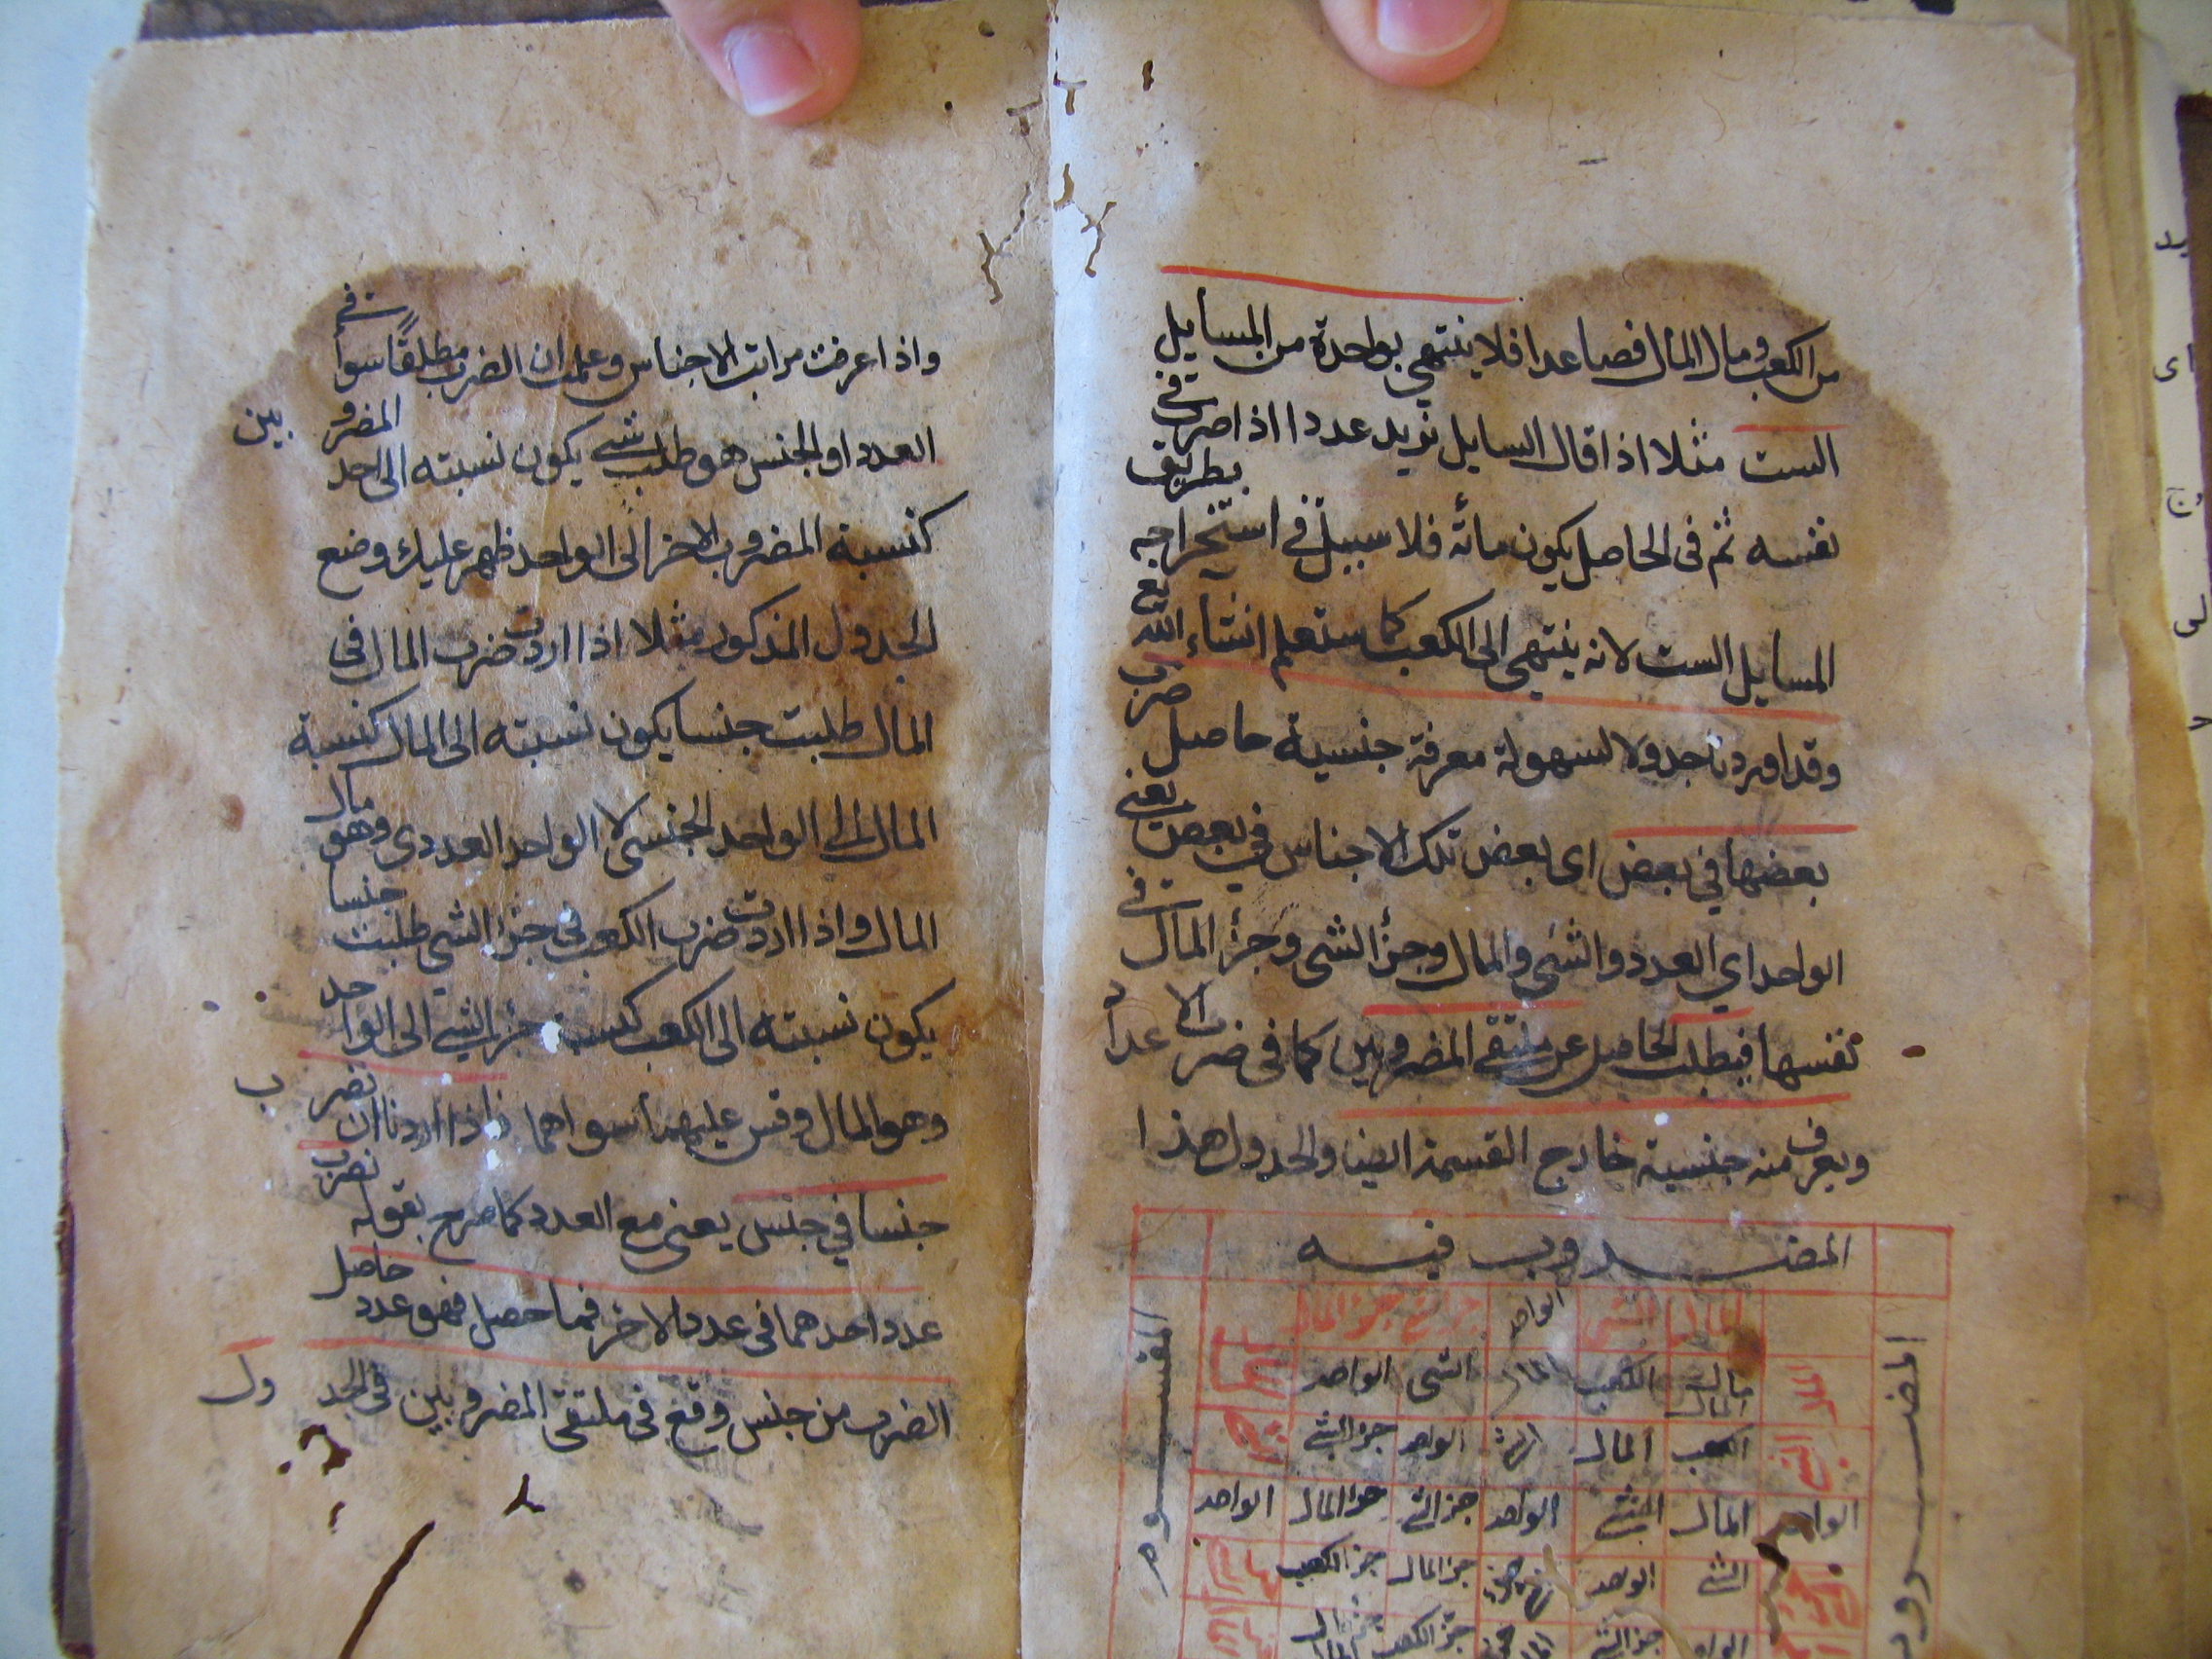 من الكعب ومال المال فصاعدا فلا ينتهي بواحدة من المسايل
الست مثلا اذا قال السايل نريد عددا اذا ضرب في
نفسه ثم في الحاصل يكون مائة فلا سبيل في استخراجه بطريق
المسايل الست لانه ينتهي الى الكعب كما ستعلم انشاء الله تع
وقد اوردنا جدولا لسهولة معرفة جنسية حاصل ضرب
بعضها في بعض اى بعض تلك الاجناس في بعض يعني
الواحد اي العدد والشئ والمال وجزأ الشئ وجزأ المال في
نفسها فيطلب الحاصل عن ملتقى المضروبين كما في ضرب الاعداد
ويعرف منه جنسية خارج القسمة ايضا والجدول هذا
المضروب فيه
المضروب
المقسوم
المال الشئ الواحد جزء الشئ جزء المال
المال مال المال الكعب المال الشئ الواحد
الكعب المال الشئ الواحد جزء الشئ
الواحد المال الشئ الواحد جزء الشئ جزء المال الواحد
الشئ الواحد جزء الشئ جزء المال جزء الكعب
الواحد جزء الشئ جزء الكعب
واذا عرفت مراتب الاجناس وعلمت ان الضرب مطلقا سواء في
العدد او الجنس هو طلب شئ يكون نسبته الى احد المضروبين
كنسبة المضروب الاخر الى الواحد ظهر عليك وضع
الجدول المذكور مثلا اذا اردت ضرب المال في
المال طلبت جنسا يكون نسبته الى المال كنسبة
المال الى الواحد الجنسي لا الواحد العددي وهو مال
المال واذا اردت ضرب الكعب في جزأ الشئ طلبت جنسا
يكون نسبته الى الكعب كنسبة جزأ الشئ الى الواحد
وهو المال وقس عليهما سواهما فاذا اردنا ان نضرب
جنسا في جنس يعنى مع العدد كما صرح بقوله نضرب
عدد احدهما في عدد الاخر فما حصل فهو عدد حاصل
الضرب من جنس وقع في ملتقى المضروبين في الجدول